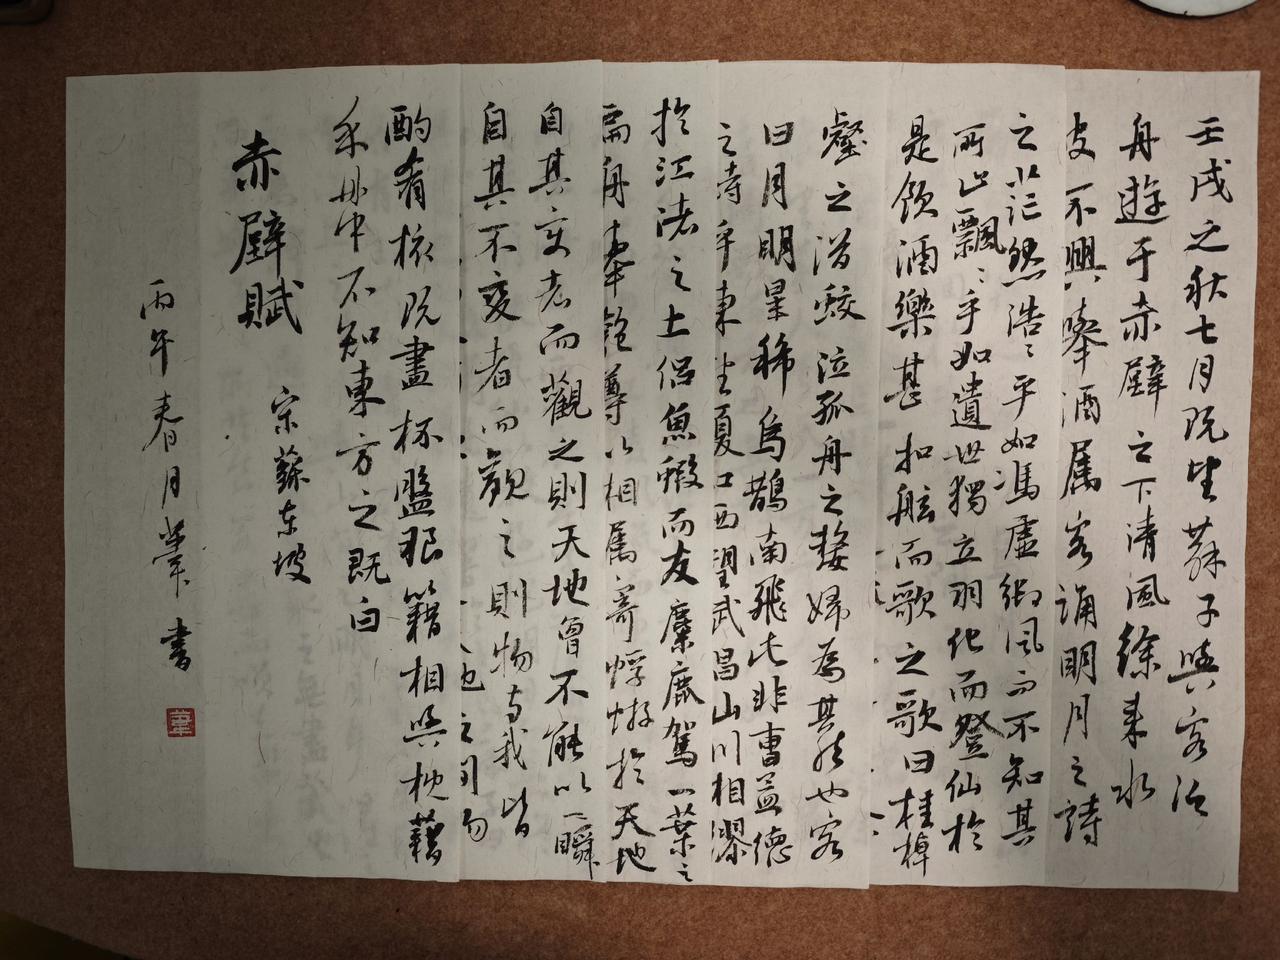 壬戌之秋七月既望蘇子與客泛
舟遊于赤壁之下清風徐來水
波不興舉酒屬客誦明月之詩
之茫然浩〻乎如馮虛御風而不知其
所止飄〻乎如遺世獨立羽化而登仙於
是飲酒樂甚扣舷而歌之歌曰桂棹
壑之潛蛟泣孤舟之嫠婦為其然也客
曰月明星稀烏鵲南飛此非曹孟德
之詩乎東望夏口西望武昌山川相繆
於江渚之上侶魚蝦而友麋鹿駕一葉之
扁舟舉匏尊以相屬寄蜉蝣於天地
自其變者而觀之則天地曾不能以一瞬
自其不變者而觀之則物與我皆
酌肴核既盡杯盤狼籍相與枕藉
乎舟中不知東方之既白
赤壁賦
宋蘇東坡
丙午春月
書